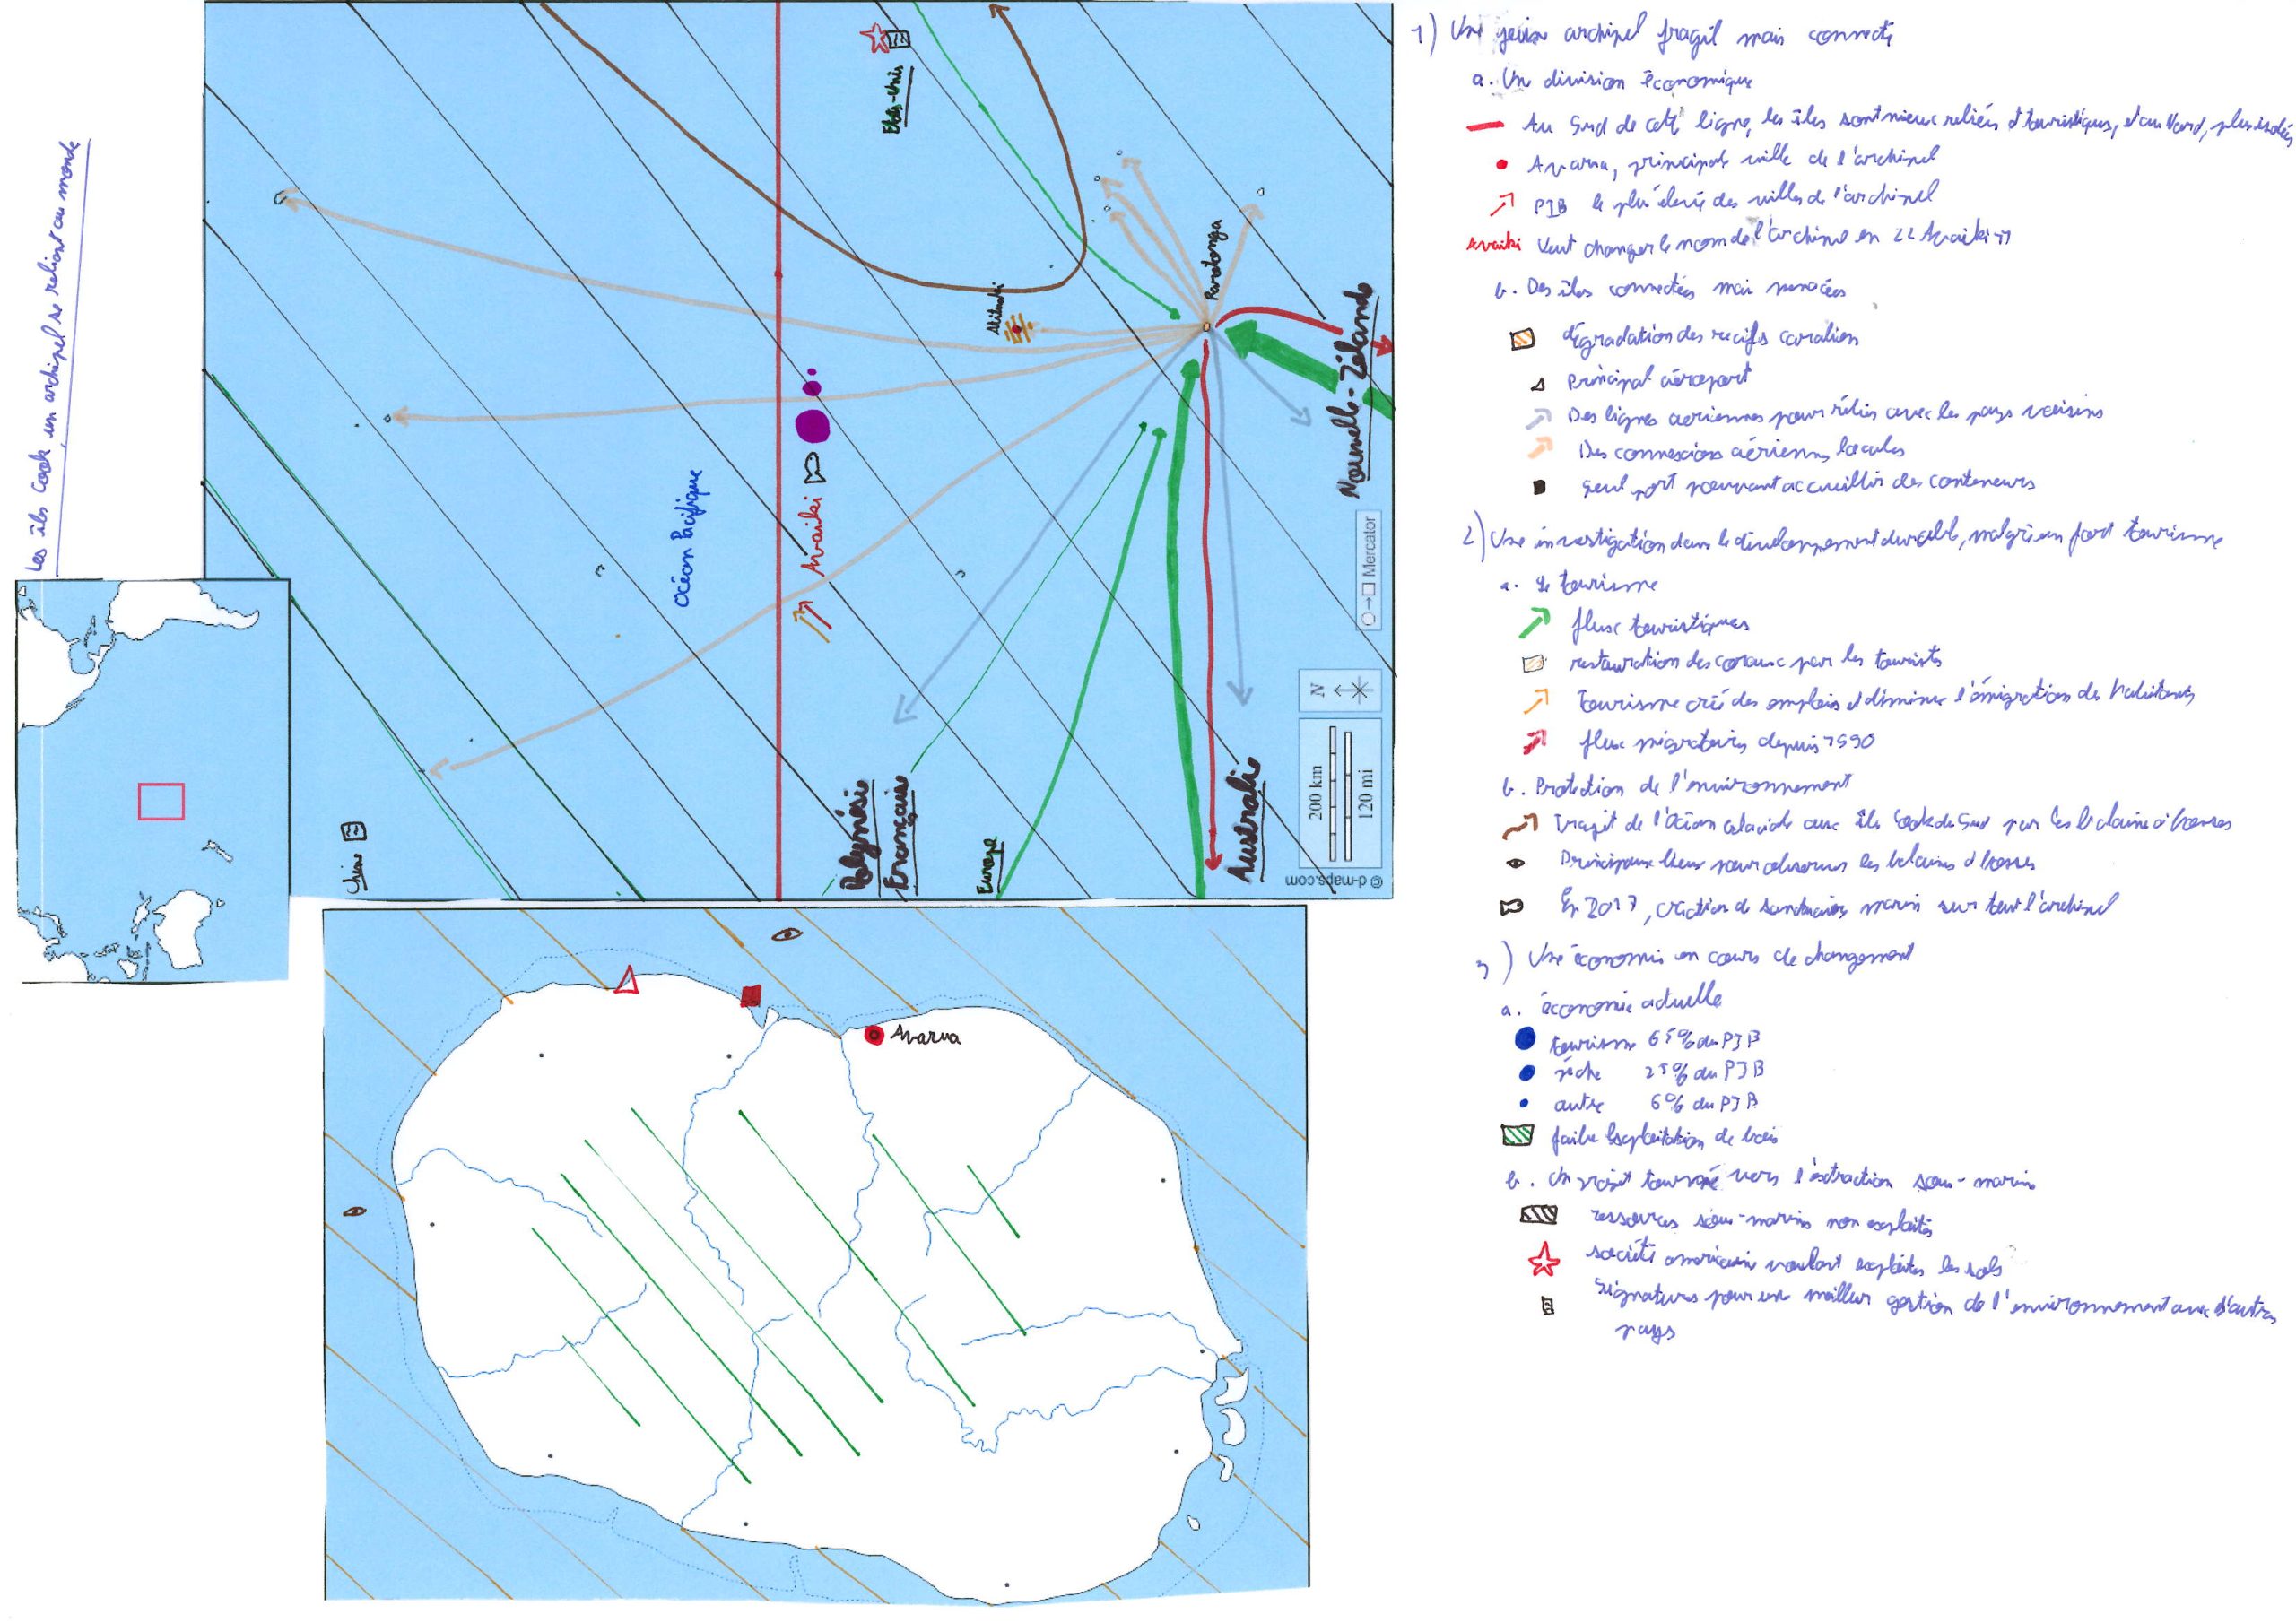 Les îles Cook un archipel se reliant au monde
Etats-Unis
Rarotonga
Aitutaki
Nouvelle-Zélande
Océan Pacifique
Avaiki
Mercator
N
200 km
120 mi
© d-maps.com
Chine
Polynésie
Français
Europe
Australie
Avarua
1) Une jeune archipel fragil mais connecté
a. Un division économique
Au Sud de cette ligne, les îles sont mieux reliées et touristiques, et au Nord, plus isolées
Avarua, principale ville de l'archipel
PIB le plus élevé des villes de l'archipel
Avaiki Veut changer le nom de l'archipel en "Avaiki"
b. Des îles connectées mais menacées
dégradation des recifs coralien
Principal aéroport
Des lignes aeriennes pour relier avec les pays voisins
Des connexions aériennes locales
Seul port pouvant accueillir des conteneurs
2) Une investigation dans le développement durable, malgré un fort tourisme
a. Le tourisme
flux touristiques
restauration des coraux par les tourists
Tourisme créé des emplois et diminue l'émigration des habitants
flux migratoires depuis 1990
b. Protection de l'environnement
Trajet de l'Océan aux îles Cook du Sud par les baleine à bosses
Principaux lieux pour observer les baleines à bosses
En 2017, création de sanctuaires marins sur tout l'archipel
3) Une économie en cours de changement
a. économie actuelle
tourisme 65% du PIB
pêche 25% du PIB
autre 6% du PIB
faible exploitation de bois
b. Un projet tourné vers l'extraction sous-marine
ressources sous-marins non exploités
société américain voulant exploiter les sols
Signatures pour une meilleur gestion de l'environnement avec d'autres
pays